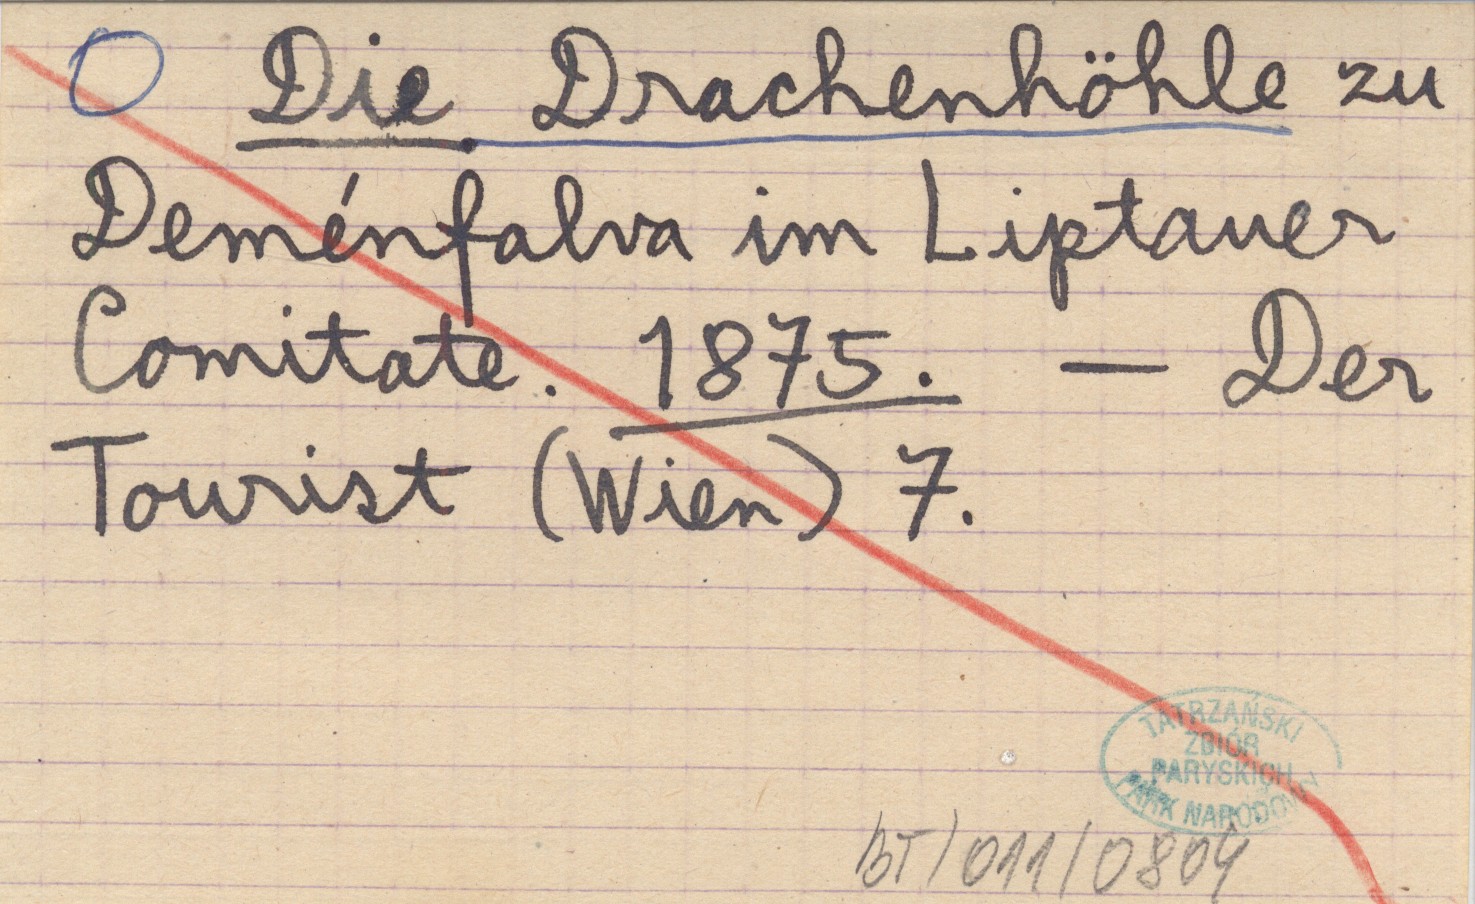 Die Drachenhöhle zu
Deménfalva im Liptauer
Comitate. 1875. — Der
Tourist (Wien) 7.
TATRZAŃSKI
ZBIÓR
PARYSKICH
PARK NARODOWY
BT/011/0804